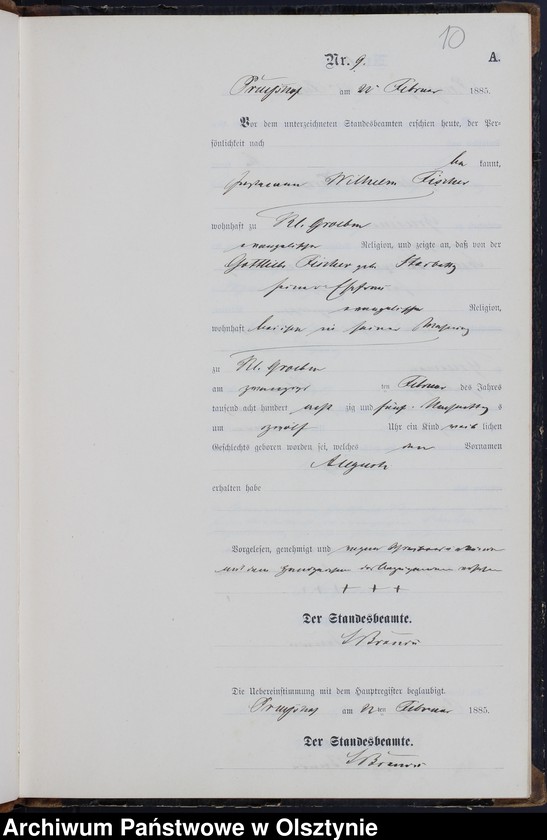 10
Nr. 9. A.
am 22 Februar 1885.
Vor dem unterzeichneten Standesbeamten erschien heute, der Per-
sönlichkeit nach
be kannt,
Wilhelm Fischer
wohnhaft zu Kl. Groeben
evangelischer Religion, und zeigte an, daß von der
Fischer geb.
seiner Ehefrau
evangelischer Religion,
wohnhaft bei ihm in seiner Wohnung
zu Kl. Groeben
am ten Februar des Jahres
tausend acht hundert acht zig und fünf Nachmittag s
um zwölf Uhr ein Kind weib lichen
Geschlechts geboren worden sei, welches den Vornamen
Auguste
erhalten habe
Vorgelesen, genehmigt und wegen
mit dem Handzeichen versehen
+ + +
Der Standesbeamte.
Die Uebereinstimmung mit dem Hauptregister beglaubigt.
am 22 ten Februar 1885.
Der Standesbeamte.
Archiwum Państwowe w Olsztynie